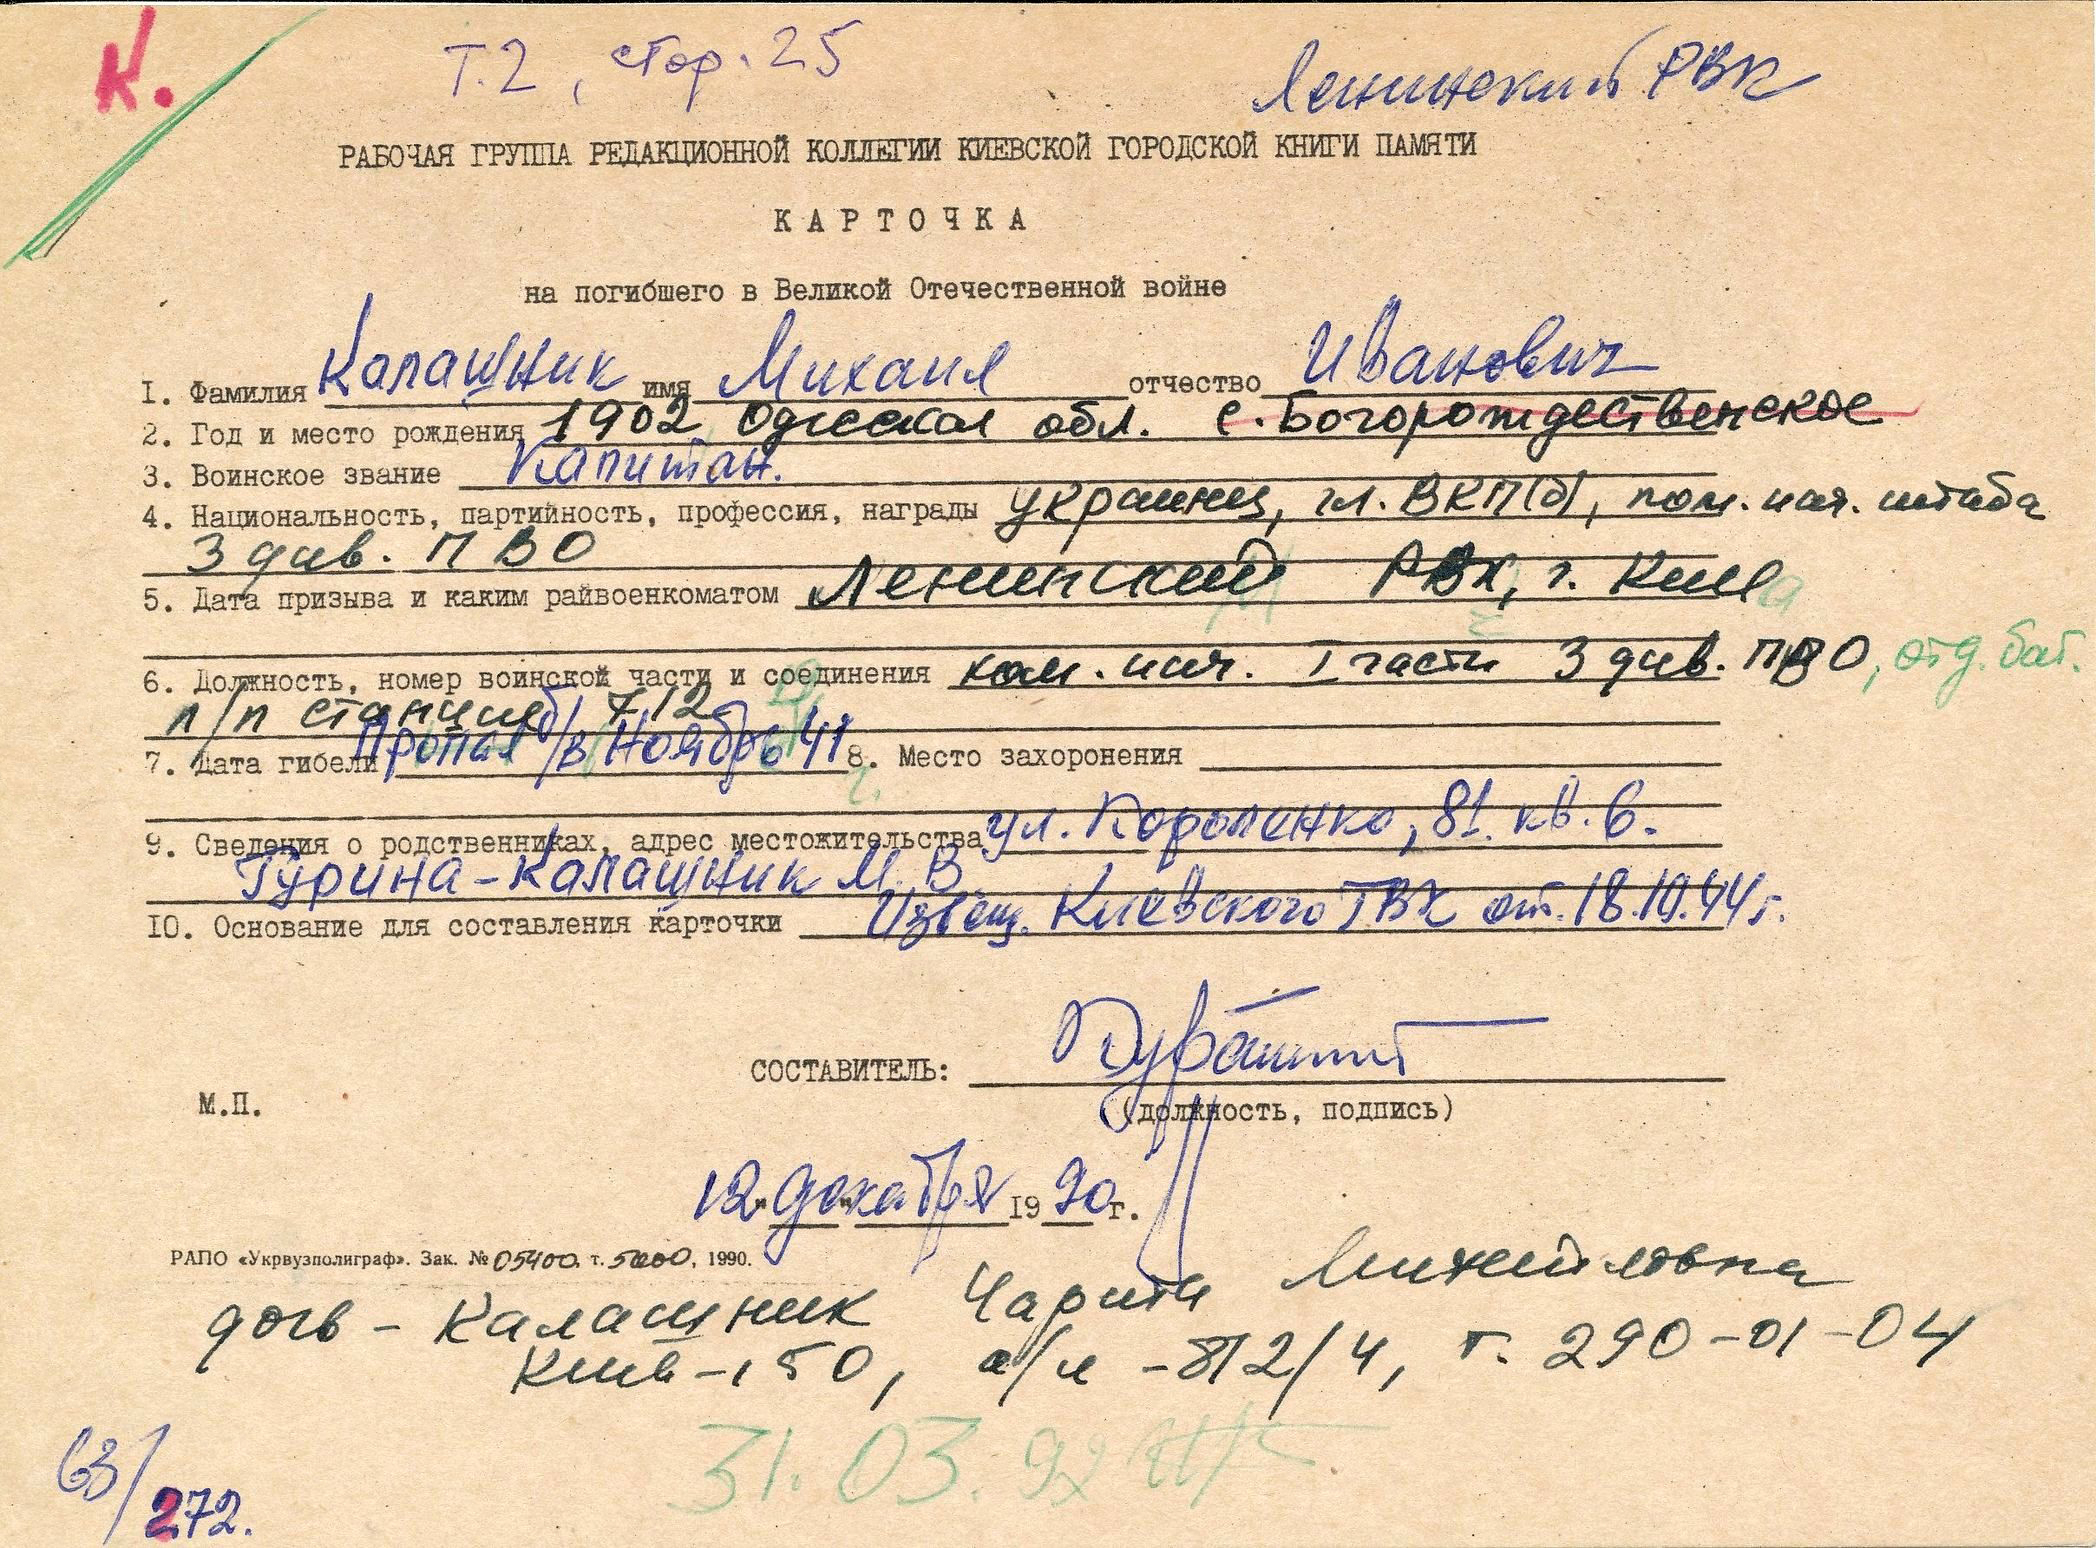 К.
Т.2, стор. 25
Ленинский РВК
РАБОЧАЯ ГРУППА РЕДАКЦИОННОЙ КОЛЛЕГИИ КИЕВСКОЙ ГОРОДСКОЙ КНИГИ ПАМЯТИ
КАРТОЧКА
на погибшего в Великой Отечественной войне
I. Фамилия Калашник имя Михаил отчество Иванович
2. Год и место рождения 1902 Одесская обл. с. Богорождественское
3. Воинское звание Капитан.
4. Национальность, партийность, профессия, награды украинец, чл. ВКП(б), пом. нач. штаба
3 див. ПВО
5. Дата призыва и каким райвоенкоматом Ленинский РВК, г. Киева
6. Должность, номер воинской части и соединения пом. нач. I части 3 див. ПВО, отд. бат.
п/п станция 712
7. Дата гибели Пропал б/в Ноябрь 41 8. Место захоронения
9. Сведения о родственниках, адрес местожительства ул. Короленко, 81. кв. 6.
Гурина-Калашник М. В
10. Основание для составления карточки Извещ. Киевского ГВК от. 18.10.44 г.
СОСТАВИТЕЛЬ:
(должность, подпись)
М.П.
12 "декабря 1990 г.
РАПО «Укрвузполиграф». Зак. № 05400. т. 5000, 1990.
дочь - Калашник Михайловна
Киев-150, а/я -812/4, т. 290-01-04
31.03.92
63/272.